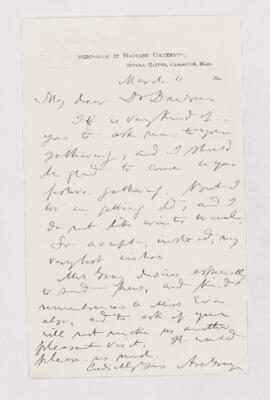 HERBARIUM OF HARVARD UNIVERSITY,
BOTANIC GARDEN, CAMBRIDGE, MASS.
March 11
My dear Dr
It is very kind of
you to ask me to your
gathering, and I should
be glad to come to your
festive gathering. But I
am getting old, and I
do not like winter travel.
So accept, instead, my
very best wishes
Mrs Gray desires especially
to send hers, and kind
remembrances to Miss Eva
also, and to ask if you
will not make us another
pleasant visit. It would
please us much.
Cordially Yours Asa Gray